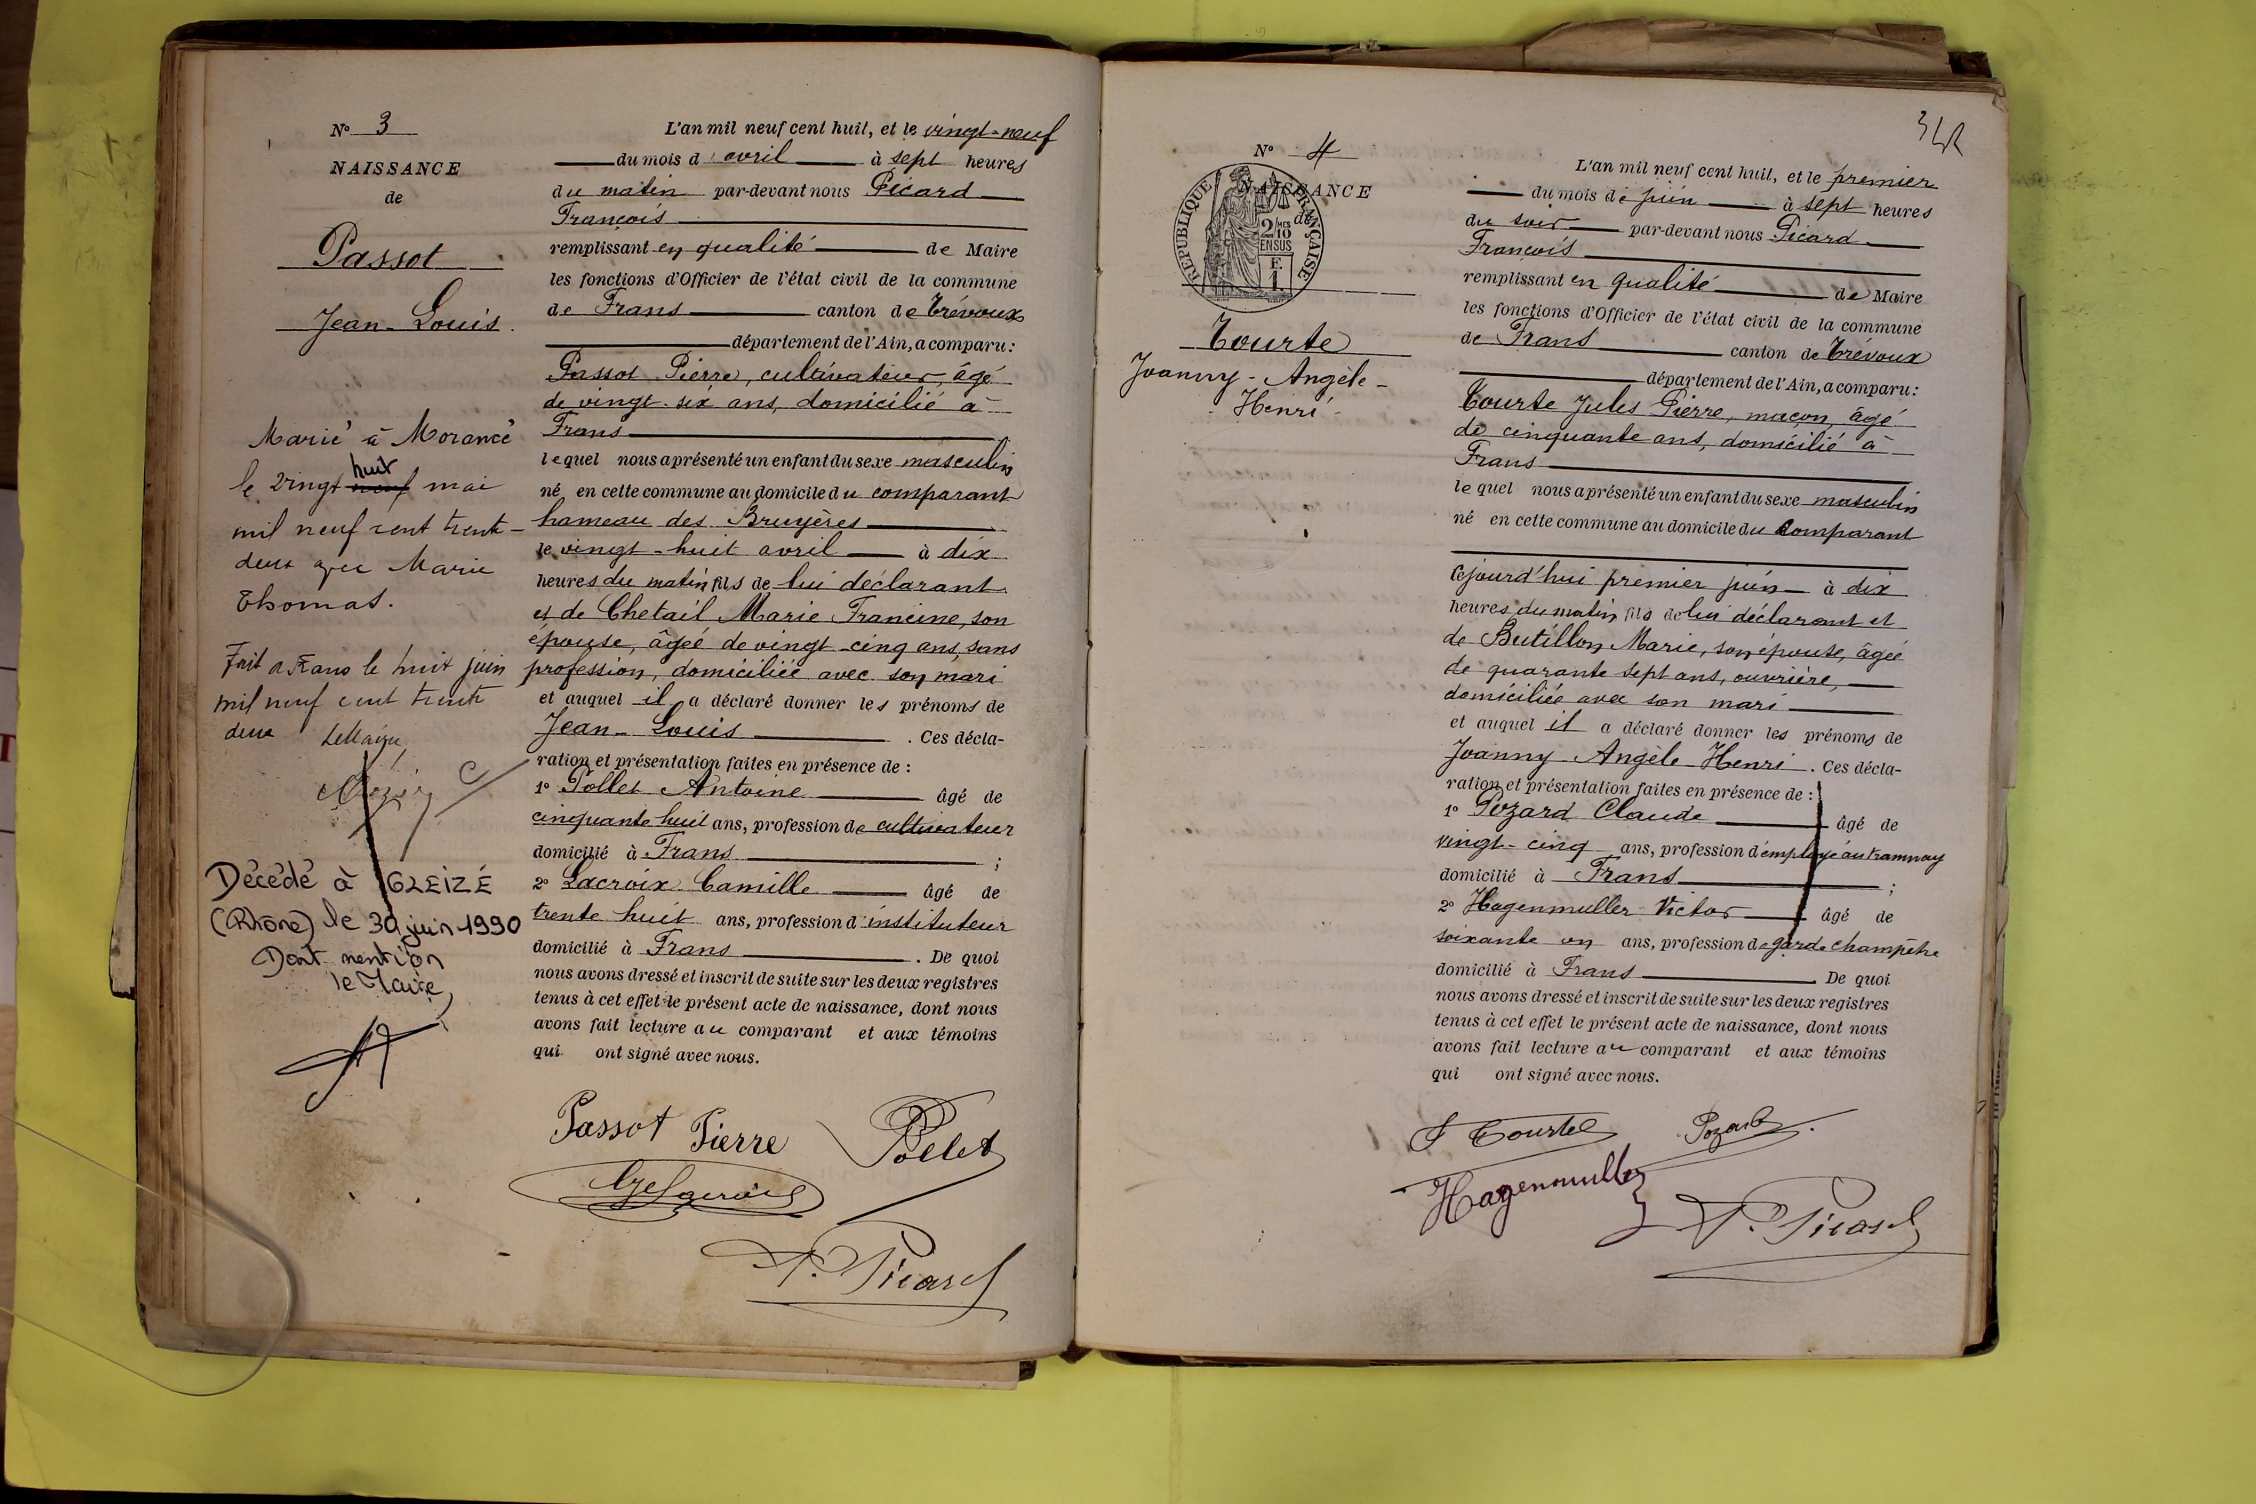 N° 3
NAISSANCE
de
Passot
Jean-Louis.
Marié à Morancé
le vingt huit mai
mil neuf cent trente-
deux avec Marie
Thomas.
Fait à Frans le huit juin
mil neuf cent trente
deux Le Maire,
Décédé à GLEIZÉ
(Rhône) le 30 juin 1990
Dont mention
le Maire,
L'an mil neuf cent huit, et le vingt-neuf
du mois d'avril à sept heures
du matin par-devant nous Picard
François
remplissant en qualité de Maire
les fonctions d'Officier de l'état civil de la commune
de Frans canton de Trévoux
département de l'Ain, a comparu:
Passot Pierre, cultivateur, âgé
de vingt-six ans, domicilié à
Frans
lequel nous a présenté un enfant du sexe masculin
né en cette commune au domicile du comparant
hameau des Bruyères
le vingt-huit avril à dix
heures du matin fils de lui déclarant
et de Chetail Marie Francine, son
épouse, âgée de vingt-cinq ans, sans
profession, domiciliée avec son mari
et auquel il a déclaré donner les prénoms de
Jean-Louis . Ces décla-
ration et présentation faites en présence de :
1° Pollet Antoine âgé de
cinquante huit ans, profession de cultivateur
domicilié à Frans ;
2° Lacroix Camille âgé de
trente huit ans, profession d'instituteur
domicilié à Frans . De quoi
nous avons dressé et inscrit de suite sur les deux registres
tenus à cet effet le présent acte de naissance, dont nous
avons fait lecture au comparant et aux témoins
qui ont signé avec nous.
Passot Pierre Pollet
F. Picard
34
N° 4
NAISSANCE
de
RÉPUBLIQUE FRANÇAISE
2/10
EN SUS
F.
1.
Tourte
Joanny-Angèle-
Henri-
L'an mil neuf cent huit, et le premier
du mois de juin à sept heures
du soir par-devant nous Picard
François
remplissant en qualité de Maire
les fonctions d'Officier de l'état civil de la commune
de Frans canton de Trévoux
département de l'Ain, a comparu:
Tourte Jules Pierre, maçon, âgé
de cinquante ans, domicilié à
Frans
lequel nous a présenté un enfant du sexe masculin
né en cette commune au domicile du comparant
cejourd'hui premier juin à dix
heures du matin fils de lui déclarant et
de Butillon Marie, son épouse, âgée
de quarante sept ans, ouvrière,
domiciliée avec son mari
et auquel il a déclaré donner les prénoms de
Joanny-Angèle-Henri . Ces décla-
ration et présentation faites en présence de :
1° Pozard Claude âgé de
vingt-cinq ans, profession d'employé au tramway
domicilié à Frans ;
2° Hagenmuller Victor âgé de
soixante un ans, profession de garde champêtre
domicilié à Frans . De quoi
nous avons dressé et inscrit de suite sur les deux registres
tenus à cet effet le présent acte de naissance, dont nous
avons fait lecture au comparant et aux témoins
qui ont signé avec nous.
J Tourte Pozard
Hagenmuller
F. Picard